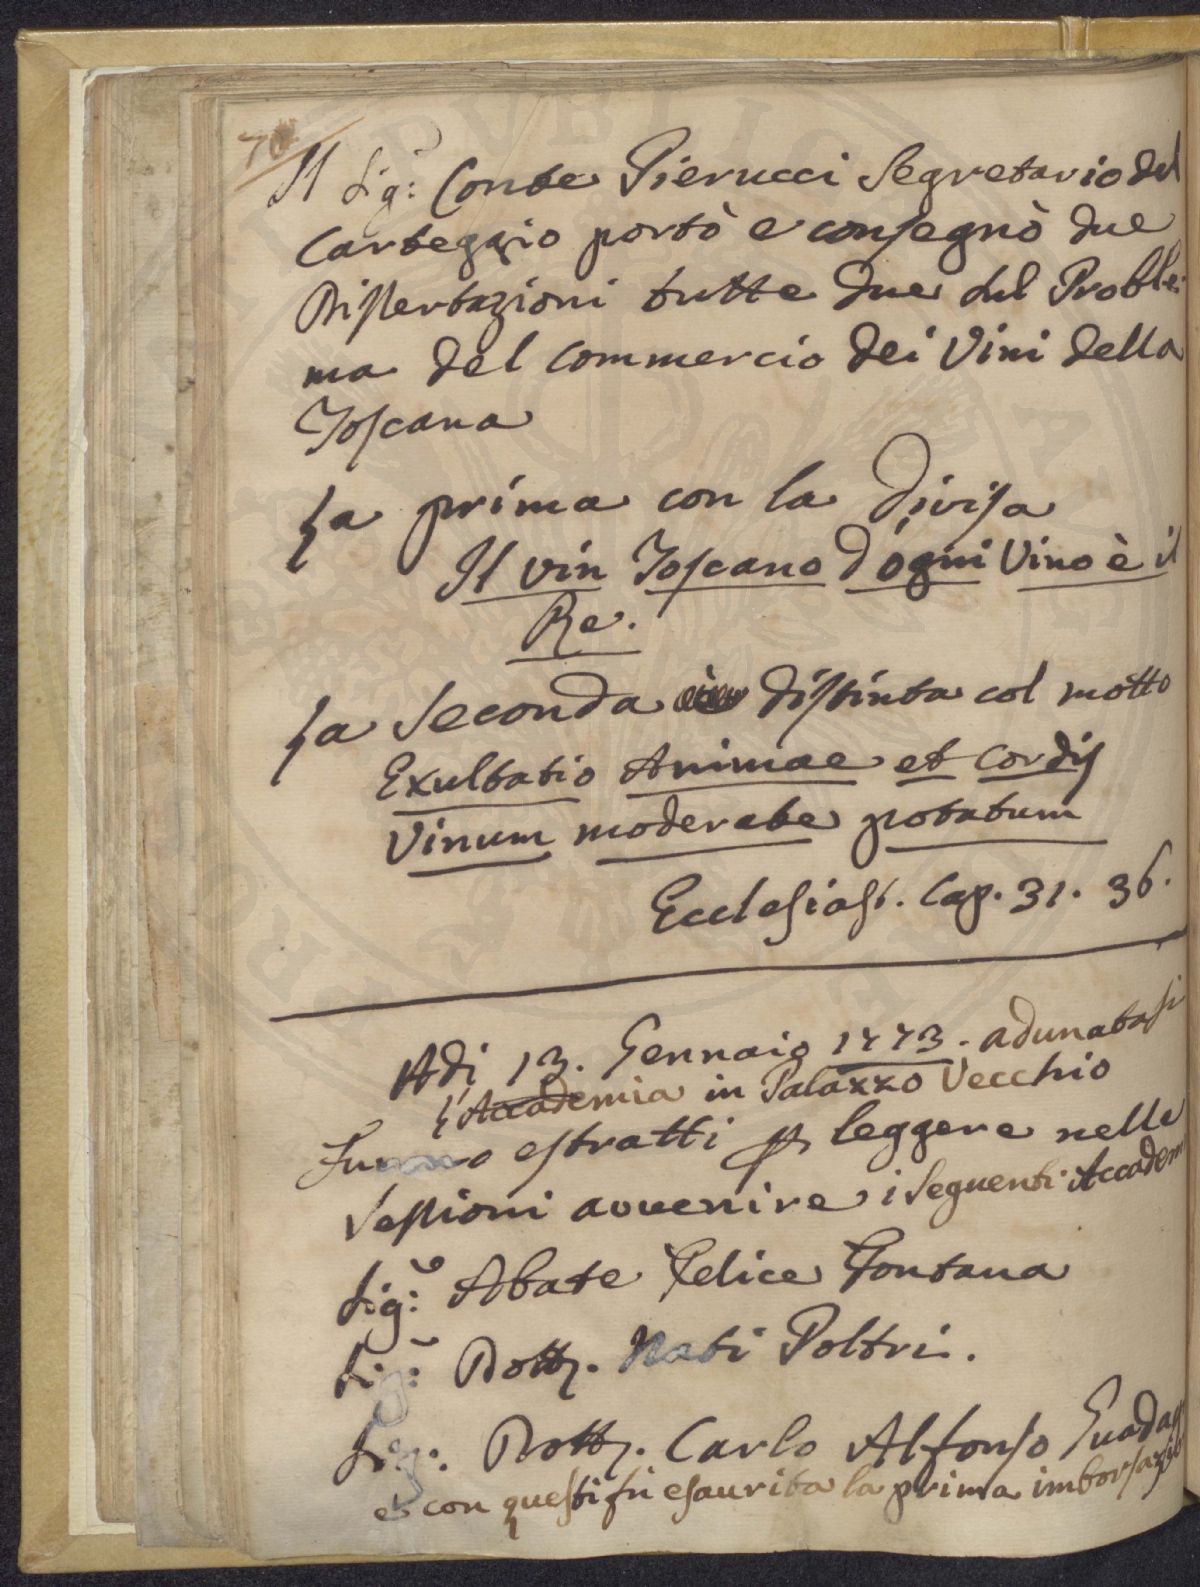 70
Il Sig: Conte Pierucci Segretario del
Carteggio portò e consegnò due
Dissertazioni tutte due sul Proble-
ma del Commercio dei Vini della
Toscana
La prima con la Divisa
Il vin Toscano d'ogni Vino è il
Re.
La Seconda distinta col motto
Exultatio Animae et Cordis
Vinum moderate potatum
Ecclesiast. Cap. 31. 36.
Adi 13. Gennaio 1773. adunatasi
l'Accademia in Palazzo Vecchio
Furono estratti p leggere nelle
Sessioni avvenire i Seguenti Accadem
Sig:e Abate Felice Fontana
Sig:e Dott. Nati Poltri.
Sig: Dott. Carlo Alfonso Guadag
e con questi fu esaurita la prima imborsazio